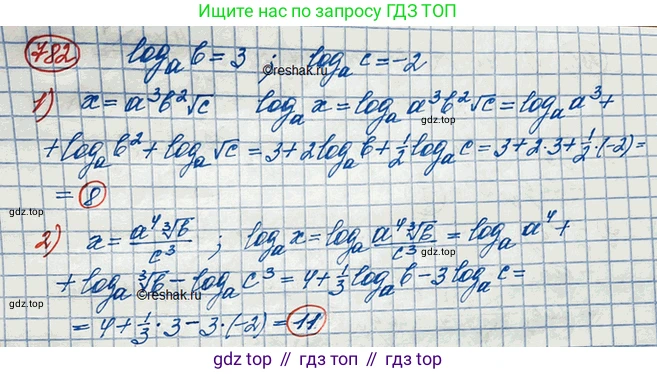 Ищите нас по запросу ГДЗ ТОП
782 log_a b = 3 ; log_a c = -2
©reshak.ru
gdz.top
1) x = a³b²√c log_a x = log_a a³b²√c = log_a a³ +
gdz.top
+ log_a b² + log_a √c = 3 + 2log_a b + ½ log_a c = 3 + 2·3 + ½·(-2) =
= 8
gdz.top
gdz.top
2) x = a⁴∛b / c³ ; log_a x = log_a a⁴∛b / c³ = log_a a⁴ +
gdz.top
+ log_a ∛b - log_a c³ = 4 + ⅓ log_a b - 3 log_a c =
©reshak.ru
gdz.top
= 4 + ⅓·3 - 3·(-2) = 11
gdz.top
gdz top // гдз топ // gdz top // гдз топ